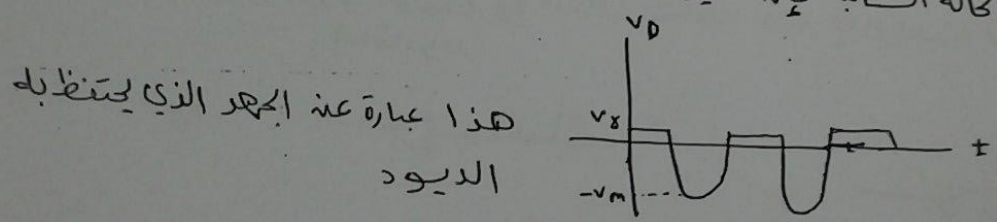 V_D
هذا عبارة عن الجهد الذي يحتفظ به
الديود
Vγ
t
-Vm